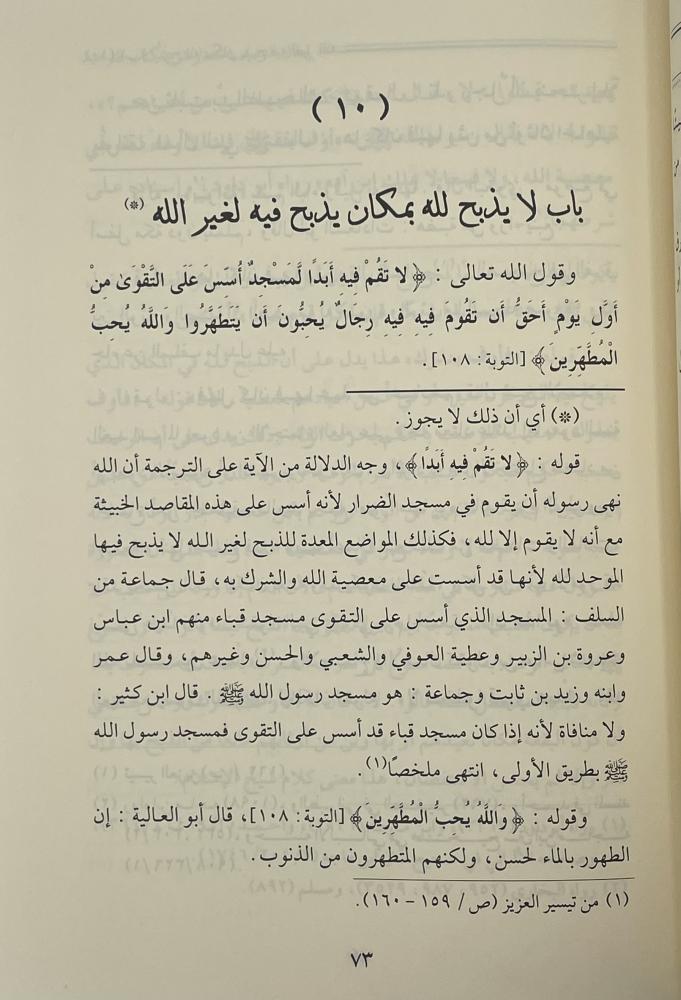 (١٠)
باب لا يذبح لله بمكان يذبح فيه لغير الله (*)
وقول الله تعالى : ﴿لا تَقُمْ فِيهِ أَبَدًا لَّمَسْجِدٌ أُسِّسَ عَلَى التَّقْوَىٰ مِنْ
أَوَّلِ يَوْمٍ أَحَقُّ أَن تَقُومَ فِيهِ فِيهِ رِجَالٌ يُحِبُّونَ أَن يَتَطَهَّرُوا وَاللَّهُ يُحِبُّ
الْمُطَّهِّرِينَ﴾ [التوبة: ١٠٨].
(*) أي أن ذلك لا يجوز.
قوله : ﴿لا تَقُمْ فِيهِ أَبَدًا﴾، وجه الدلالة من الآية على الترجمة أن الله
نهى رسوله أن يقوم في مسجد الضرار لأنه أسس على هذه المقاصد الخبيثة
مع أنه لا يقوم إلا لله، فكذلك المواضع المعدة للذبح لغير الله لا يذبح فيها
الموحد لله لأنها قد أسست على معصية الله والشرك به، قال جماعة من
السلف : المسجد الذي أسس على التقوى مسجد قباء منهم ابن عباس
وعروة بن الزبير وعطية العوفي والشعبي والحسن وغيرهم، وقال عمر
وابنه وزيد بن ثابت وجماعة : هو مسجد رسول الله ﷺ . قال ابن كثير :
ولا منافاة لأنه إذا كان مسجد قباء قد أسس على التقوى فمسجد رسول الله
ﷺ بطريق الأولى، انتهى ملخصًا(١).
وقوله : ﴿وَاللَّهُ يُحِبُّ الْمُطَّهِّرِينَ﴾ [التوبة: ١٠٨]، قال أبو العالية : إن
الطهور بالماء لحسن، ولكنهم المتطهرون من الذنوب.
(١) من تيسير العزيز (ص/ ١٥٩ - ١٦٠).
٧٣